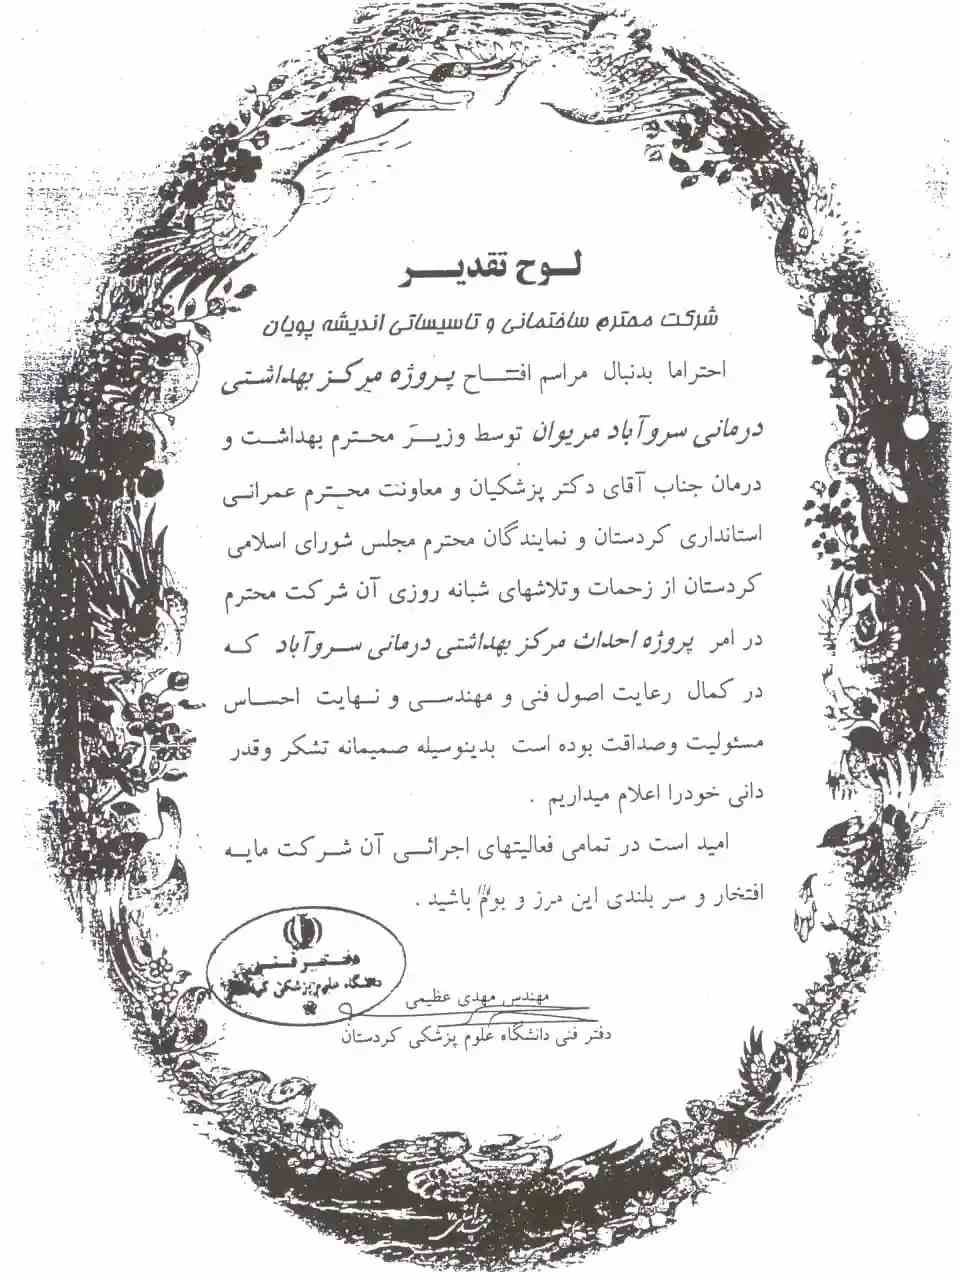 لوح تقدیر
شرکت محترم ساختمانی و تاسیساتی اندیشه پویان
احتراما بدنبال مراسم افتتاح پروژه مرکز بهداشتی
درمانی سروآباد مریوان توسط وزیر محترم بهداشت و
درمان جناب آقای دکتر پزشکیان و معاونت محترم عمرانی
استانداری کردستان و نمایندگان محترم مجلس شورای اسلامی
کردستان از زحمات وتلاشهای شبانه روزی آن شرکت محترم
در امر پروژه احداث مرکز بهداشتی درمانی سروآباد که
در کمال رعایت اصول فنی و مهندسی و نهایت احساس
مسئولیت وصداقت بوده است بدینوسیله صمیمانه تشکر وقدر
دانی خودرا اعلام میداریم .
امید است در تمامی فعالیتهای اجرائی آن شرکت مایه
افتخار و سر بلندی این مرز و بوم باشید .
دفتر فنی
دانشگاه علوم پزشکی
مهندس مهدی عظیمی
دفتر فنی دانشگاه علوم پزشکی کردستان